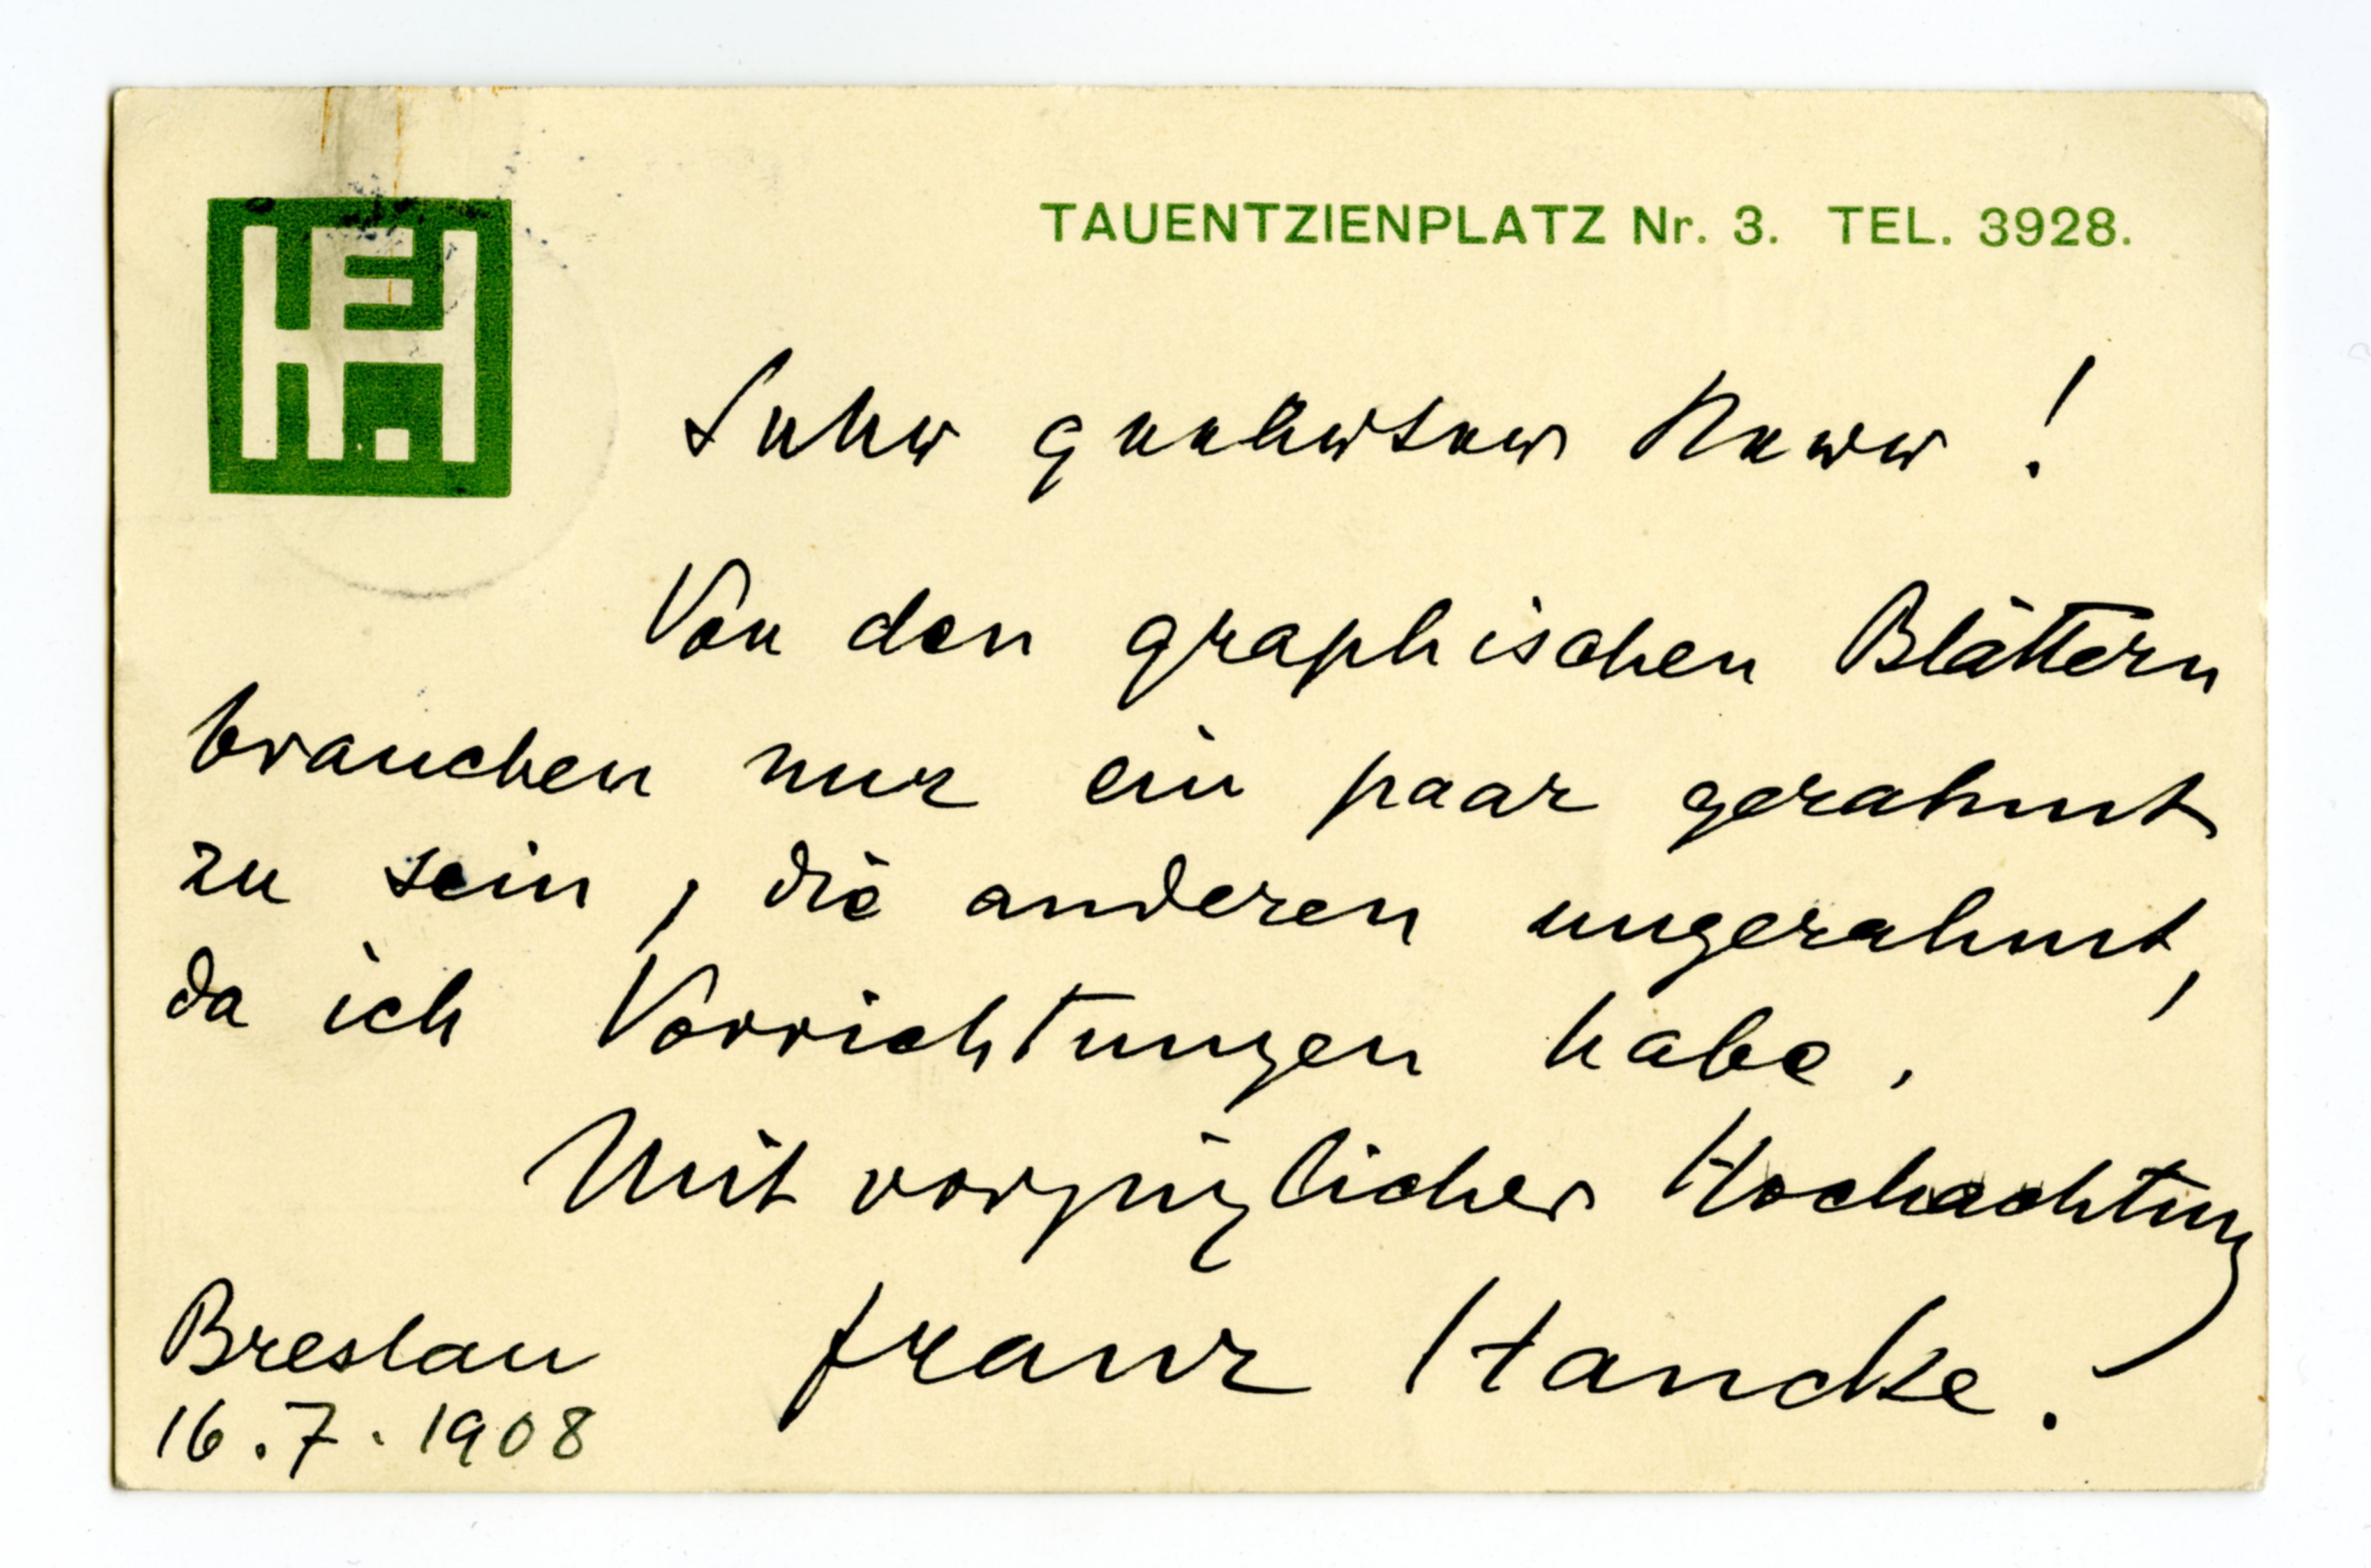 FH.
TAUENTZIENPLATZ Nr. 3. TEL. 3928.
Sehr geehrter Herr !
Von den graphischen Blättern
brauchen nur ein paar gerahmt
zu sein, die anderen ungerahmt,
da ich Vorrichtungen habe.
Mit vorzüglicher Hochachtung
Franz Hancke.
Breslau
16.7.1908